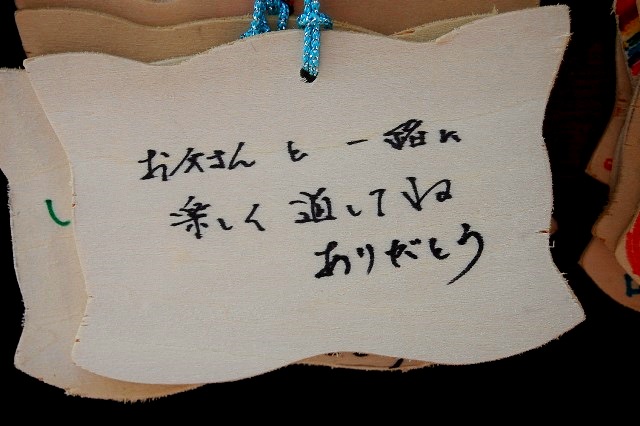 お父さんと一緒に
楽しく過してね
ありがとう